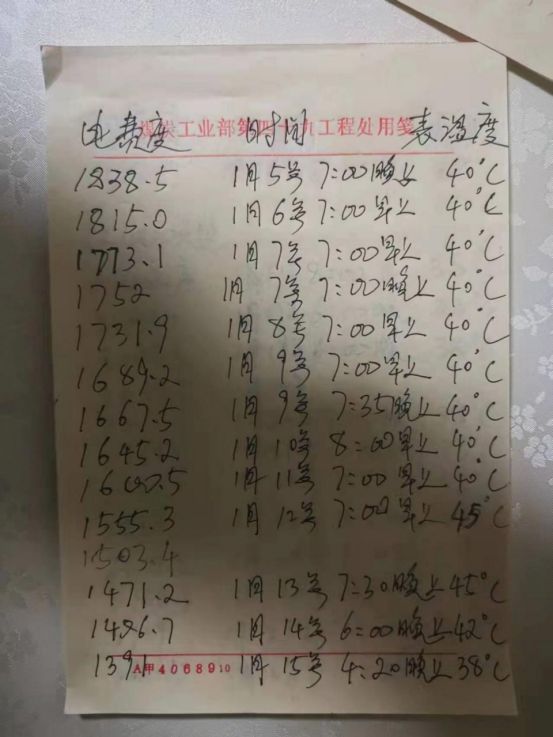 煤炭工业部第四十九工程处用笺
电费度 时间 表温度
1838.5 1月5号 7:00晚上 40°C
1815.0 1月6号 7:00早上 40°C
1773.1 1月7号 7:00早上 40°C
1752 1月7号 7:00晚上 40°C
1731.9 1月8号 7:00早上 40°C
1689.2 1月9号 7:00早上 40°C
1667.5 1月9号 7:35晚上 40°C
1645.2 1月10号 8:00早上 40°C
1600.5 1月11号 7:00早上 40°C
1555.3 1月12号 7:00早上 45°C
1503.4
1471.2 1月13号 7:30晚上 45°C
1426.7 1月14号 6:00晚上 42°C
1391 1月15号 4:20晚上 38°C
A甲4068910